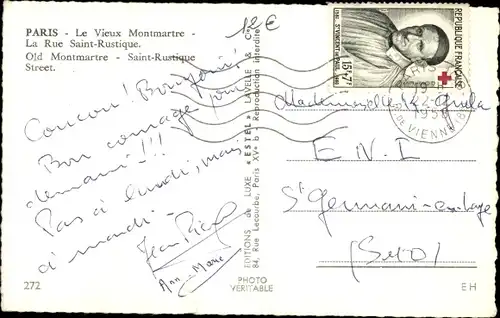 PARIS - Le Vieux Montmartre -
La Rue Saint-Rustique.
Old Montmartre - Saint-Rustique
Street.
12€
Coucou! Bonjour!
Bon courage pour
demain!!!
Pas à lundi, mais
à mardi.
Jean
Ann-Marie
272
EDITIONS de LUXE « ESTEL » LAVELLE & Cie
84, Rue Lecourbe, Paris XVe b - Reproduction interdite
PHOTO
VERITABLE
REPUBLIQUE FRANÇAISE
15f+7f
ST VINCENT DE PAUL
VIENNE
Mademoiselle
E.N.I
St Germain-en-Laye
(S et O)
EH